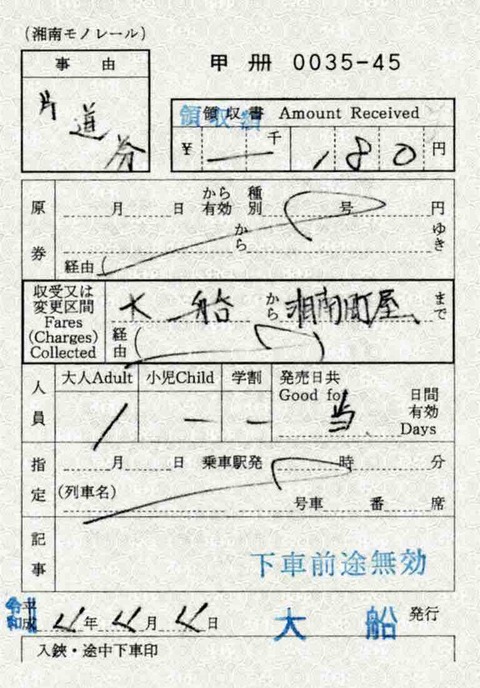 （湘南モノレール）
事由
甲 冊 0035-45
片道券
領収書 領収書 Amount Received
¥ 一 千 180 円
原券
月 日 から有効 種別 号 円
から ゆき
経由
収受又は変更区間 Fares (Charges) Collected
大船 から 湘南町屋 まで
経由
人員
大人Adult 小児Child 学割 発売日共 Good for 日間有効 Days
1 ー ー 当
指定
月 日 乗車駅発 時 分
(列車名)
号車 番 席
記事
下車前途無効
令和 平成 年 月 日
大船 発行
入鋏・途中下車印